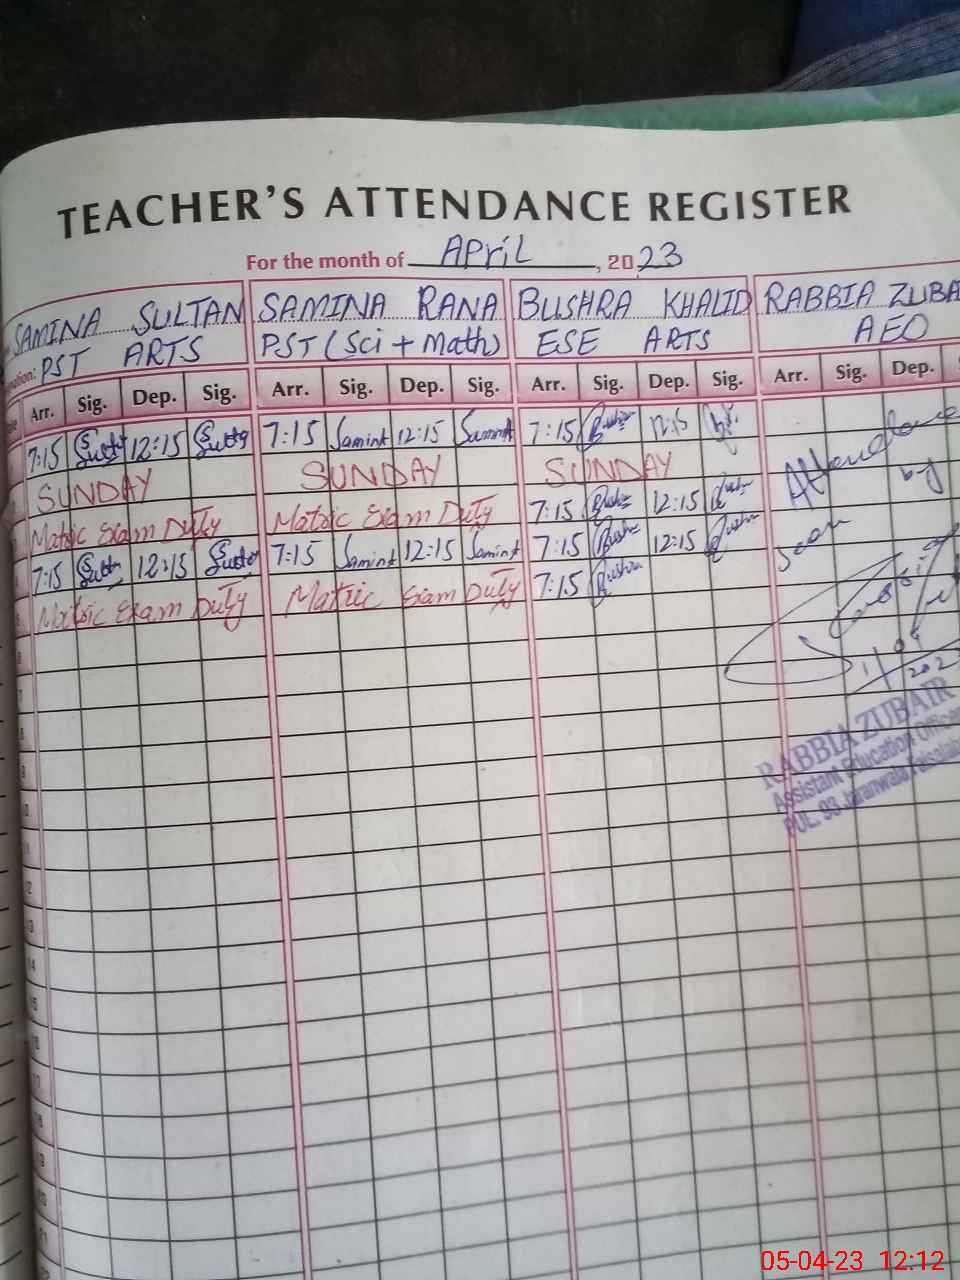 TEACHER'S ATTENDANCE REGISTER
For the month of April, 2023
SAMINA SULTAN SAMINA RANA BUSHRA KHALID RABBIA ZUBA
PST ARTS PST (Sci + Math) ESE ARTS AEO
Arr. Sig. Dep. Sig. Arr. Sig. Dep. Sig. Arr. Sig. Dep. Sig. Arr. Sig. Dep.
7:15 12:15 7:15 Samina 12:15 Samina 7:15 Bushra 12:15
SUNDAY SUNDAY SUNDAY
Matric Exam Duty Matric Exam Duty 7:15 Bushra 12:15 Bushra
7:15 12:15 7:15 Samina 12:15 Samina 7:15 Bushra 12:15 Bushra
Matric Exam Duty Matric Exam Duty 7:15 Bushra
Attendance
by
RABBIA ZUBAIR
Assistant Education Officer
Jaranwala
9
10
11
12
13
14
15
05-04-23 12:12